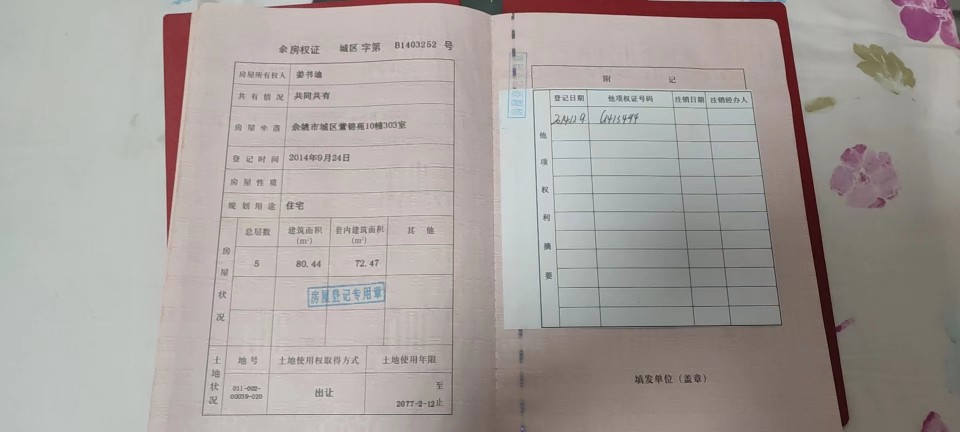 余房权证 城区 字第 B1403252 号
房屋所有权人 姜书迪
共有情况 共同共有
房屋坐落 余姚市城区紫锦苑10幢303室
登记时间 2014年9月24日
房屋性质
规划用途 住宅
房屋状况
总层数 建筑面积(m²) 套内建筑面积(m²) 其他
5 80.44 72.47
房屋登记专用章
土地状况
地号 土地使用权取得方式 土地使用年限
011-002-00039-020 出让 至 2077-2-12止
附 记
他项权利摘要
登记日期 他项权证号码 注销日期 注销经办人
填发单位（盖章）